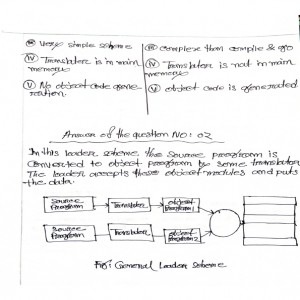 (iii) Very simple scheme
(iii) complex than compile & go
(iv) Translator is in main memory
(iv) Translator is not in main memory
(v) No object code generation.
(v) object code is generated
Answer of the question No: 02
In this loader scheme the source program is
converted to object program by some translator
The loader accepts these object modules and puts
the data.
Source Program
Translator
object Program 1
Source Program
Translator
object Program 2
Fig: General Loader Scheme